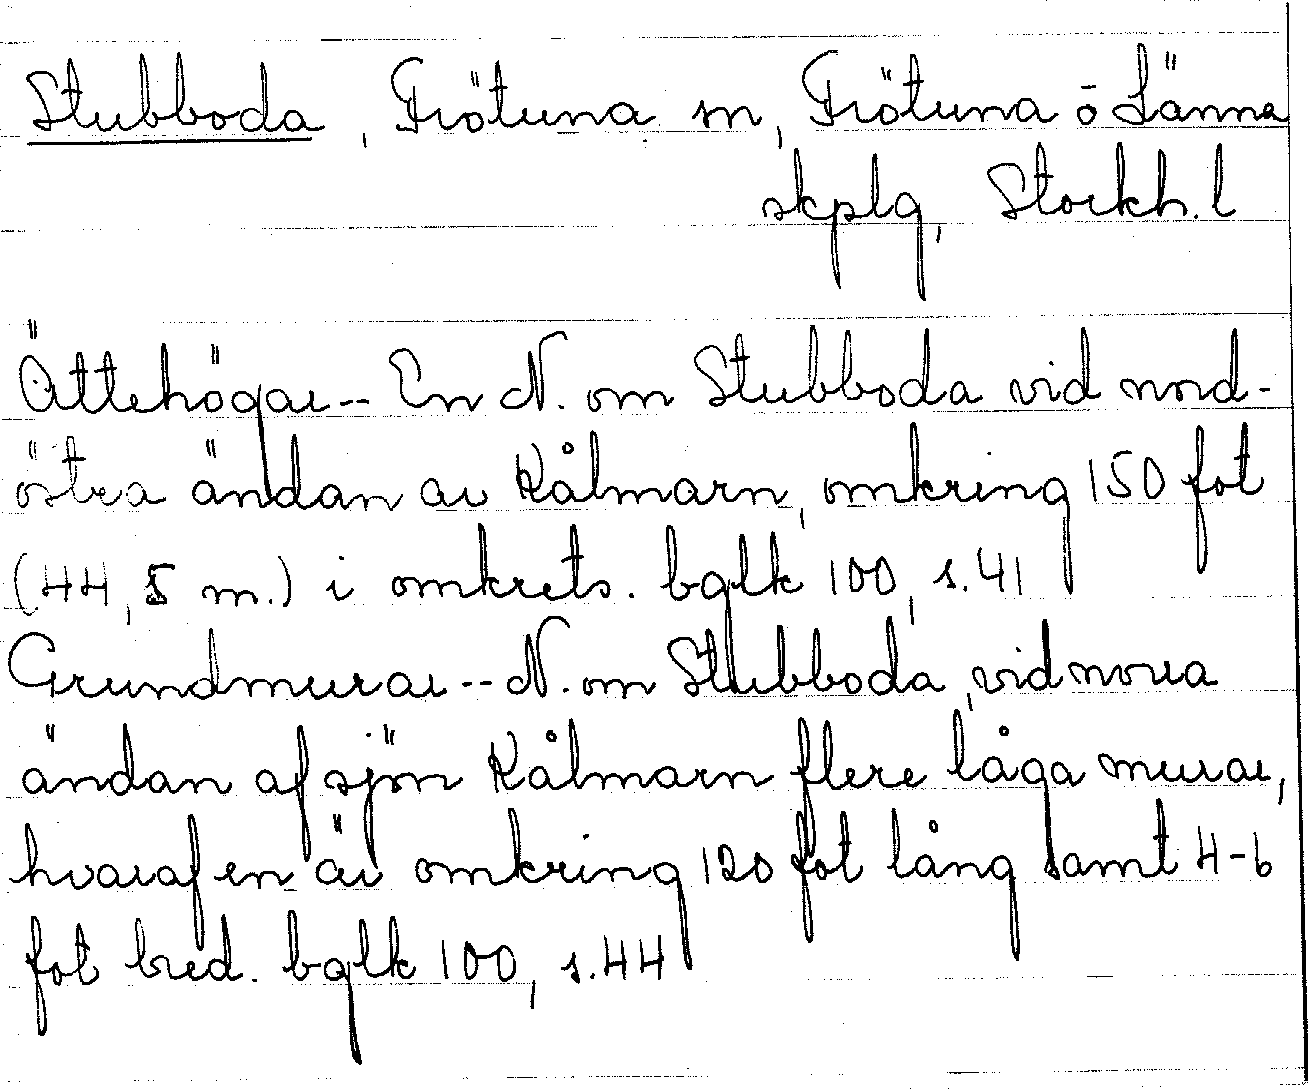 Stubboda, Frötuna sn, Frötuna o Länna
skplg, Stockh. l
Ättehögar -- En N. om Stubboda vid nord-
östra ändan av Kålmarn, omkring 150 fot
(44,5 m.) i omkrets. bglk 100, s. 41
Grundmurar -- N. om Stubboda, vid norra
ändan af sjön Kålmarn flere låga murar,
hvaraf en är omkring 120 fot lång samt 4-6
fot bred. bglk 100, s. 44